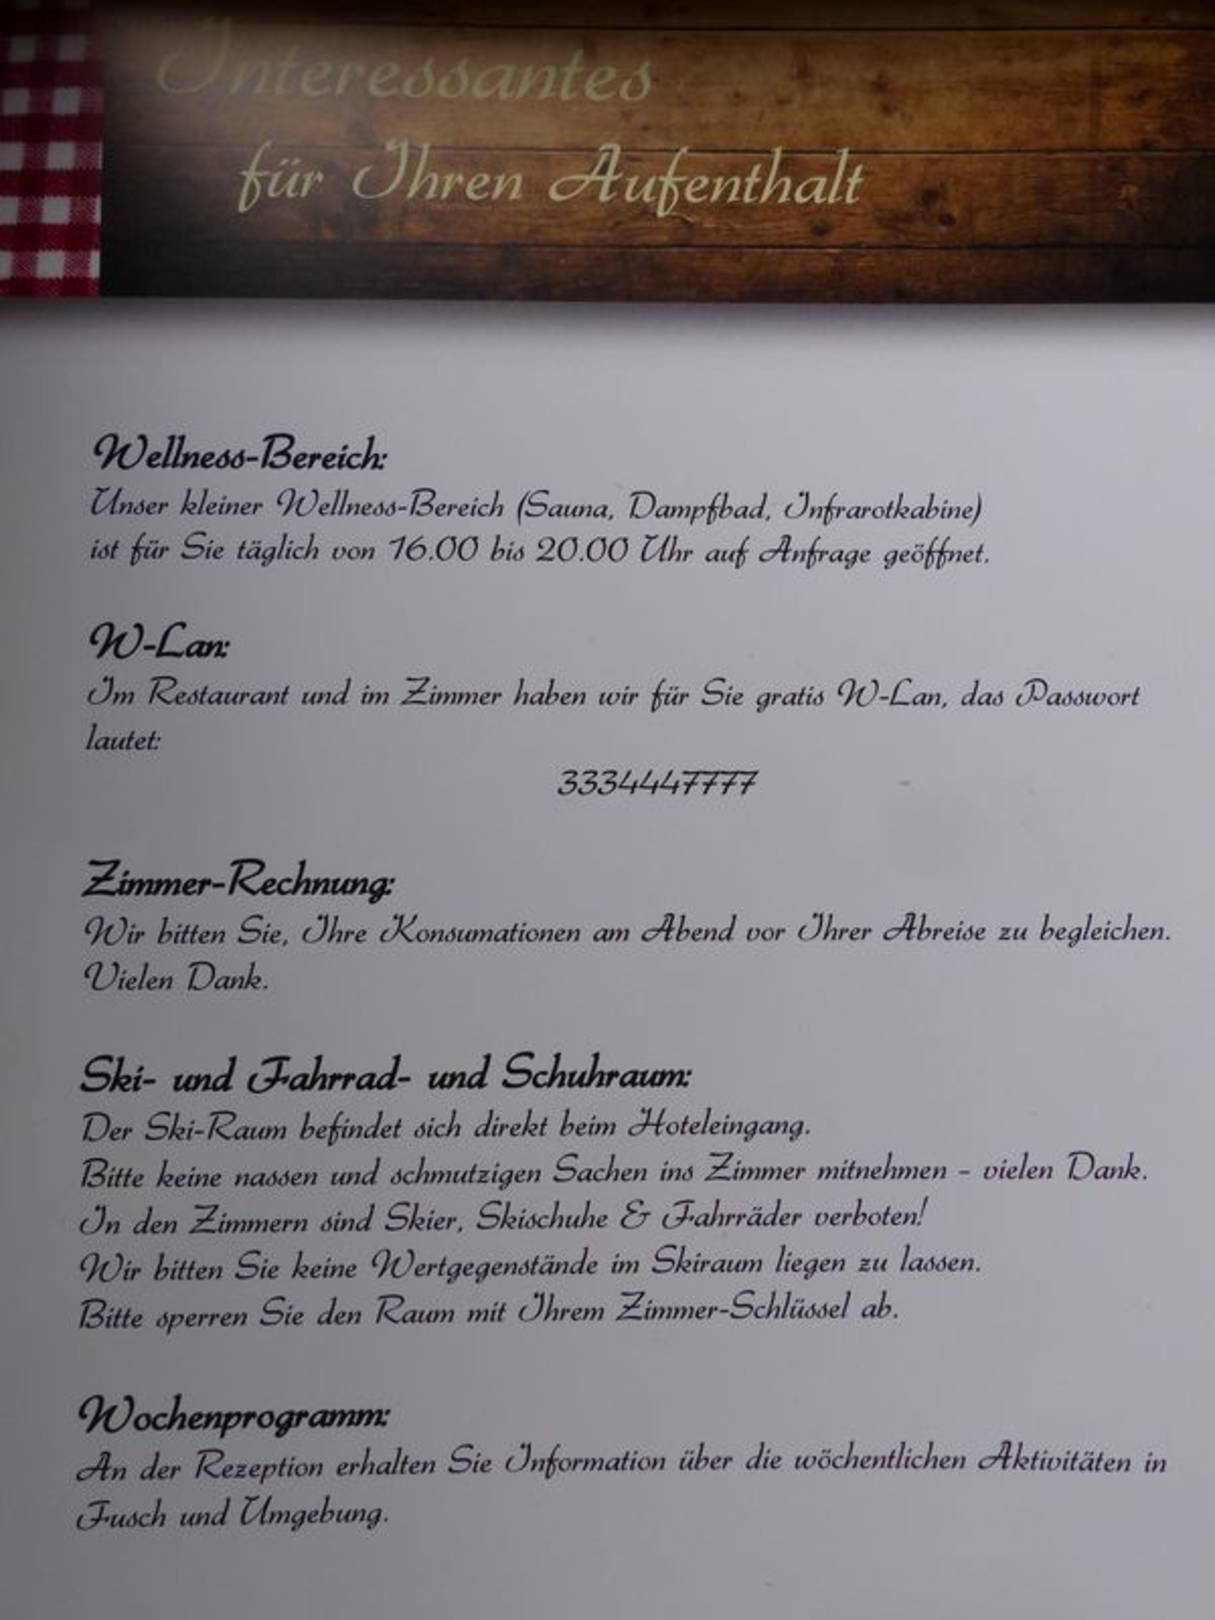 Interessantes
für Ihren Aufenthalt
Wellness-Bereich:
Unser kleiner Wellness-Bereich (Sauna, Dampfbad, Infrarotkabine)
ist für Sie täglich von 16.00 bis 20.00 Uhr auf Anfrage geöffnet.
W-Lan:
Im Restaurant und im Zimmer haben wir für Sie gratis W-Lan, das Passwort
lautet:
3334447777
Zimmer-Rechnung:
Wir bitten Sie, Ihre Konsumationen am Abend vor Ihrer Abreise zu begleichen.
Vielen Dank.
Ski- und Fahrrad- und Schuhraum:
Der Ski-Raum befindet sich direkt beim Hoteleingang.
Bitte keine nassen und schmutzigen Sachen ins Zimmer mitnehmen - vielen Dank.
In den Zimmern sind Skier, Skischuhe & Fahrräder verboten!
Wir bitten Sie keine Wertgegenstände im Skiraum liegen zu lassen.
Bitte sperren Sie den Raum mit Ihrem Zimmer-Schlüssel ab.
Wochenprogramm:
An der Rezeption erhalten Sie Information über die wöchentlichen Aktivitäten in
Fusch und Umgebung.